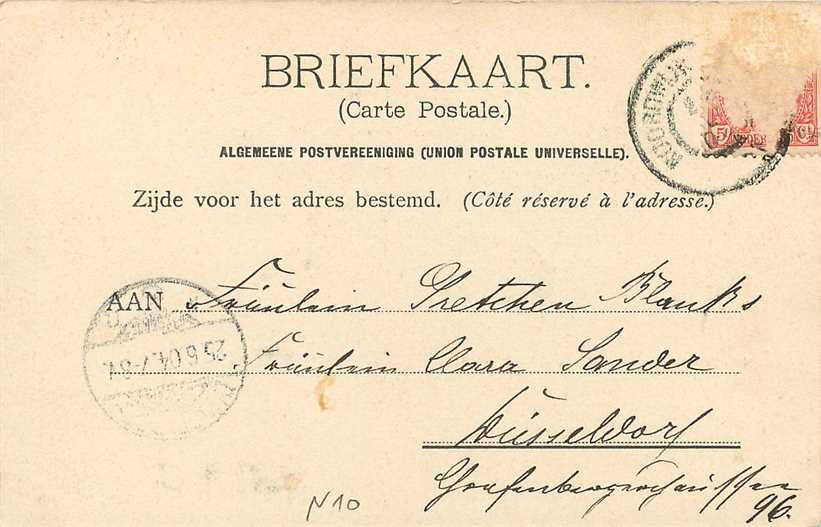 BRIEFKAART.
(Carte Postale.)
ALGEMEENE POSTVEREENIGING (UNION POSTALE UNIVERSELLE).
Zijde voor het adres bestemd. (Côté réservé à l'adresse.)
NOORDWIJK
AAN Fräulein Gretchen Blanks
Fräulein Clara Sander
Düsseldorf
Grafenbergerchaussee
96.
25.6.04.7-8V.
N10